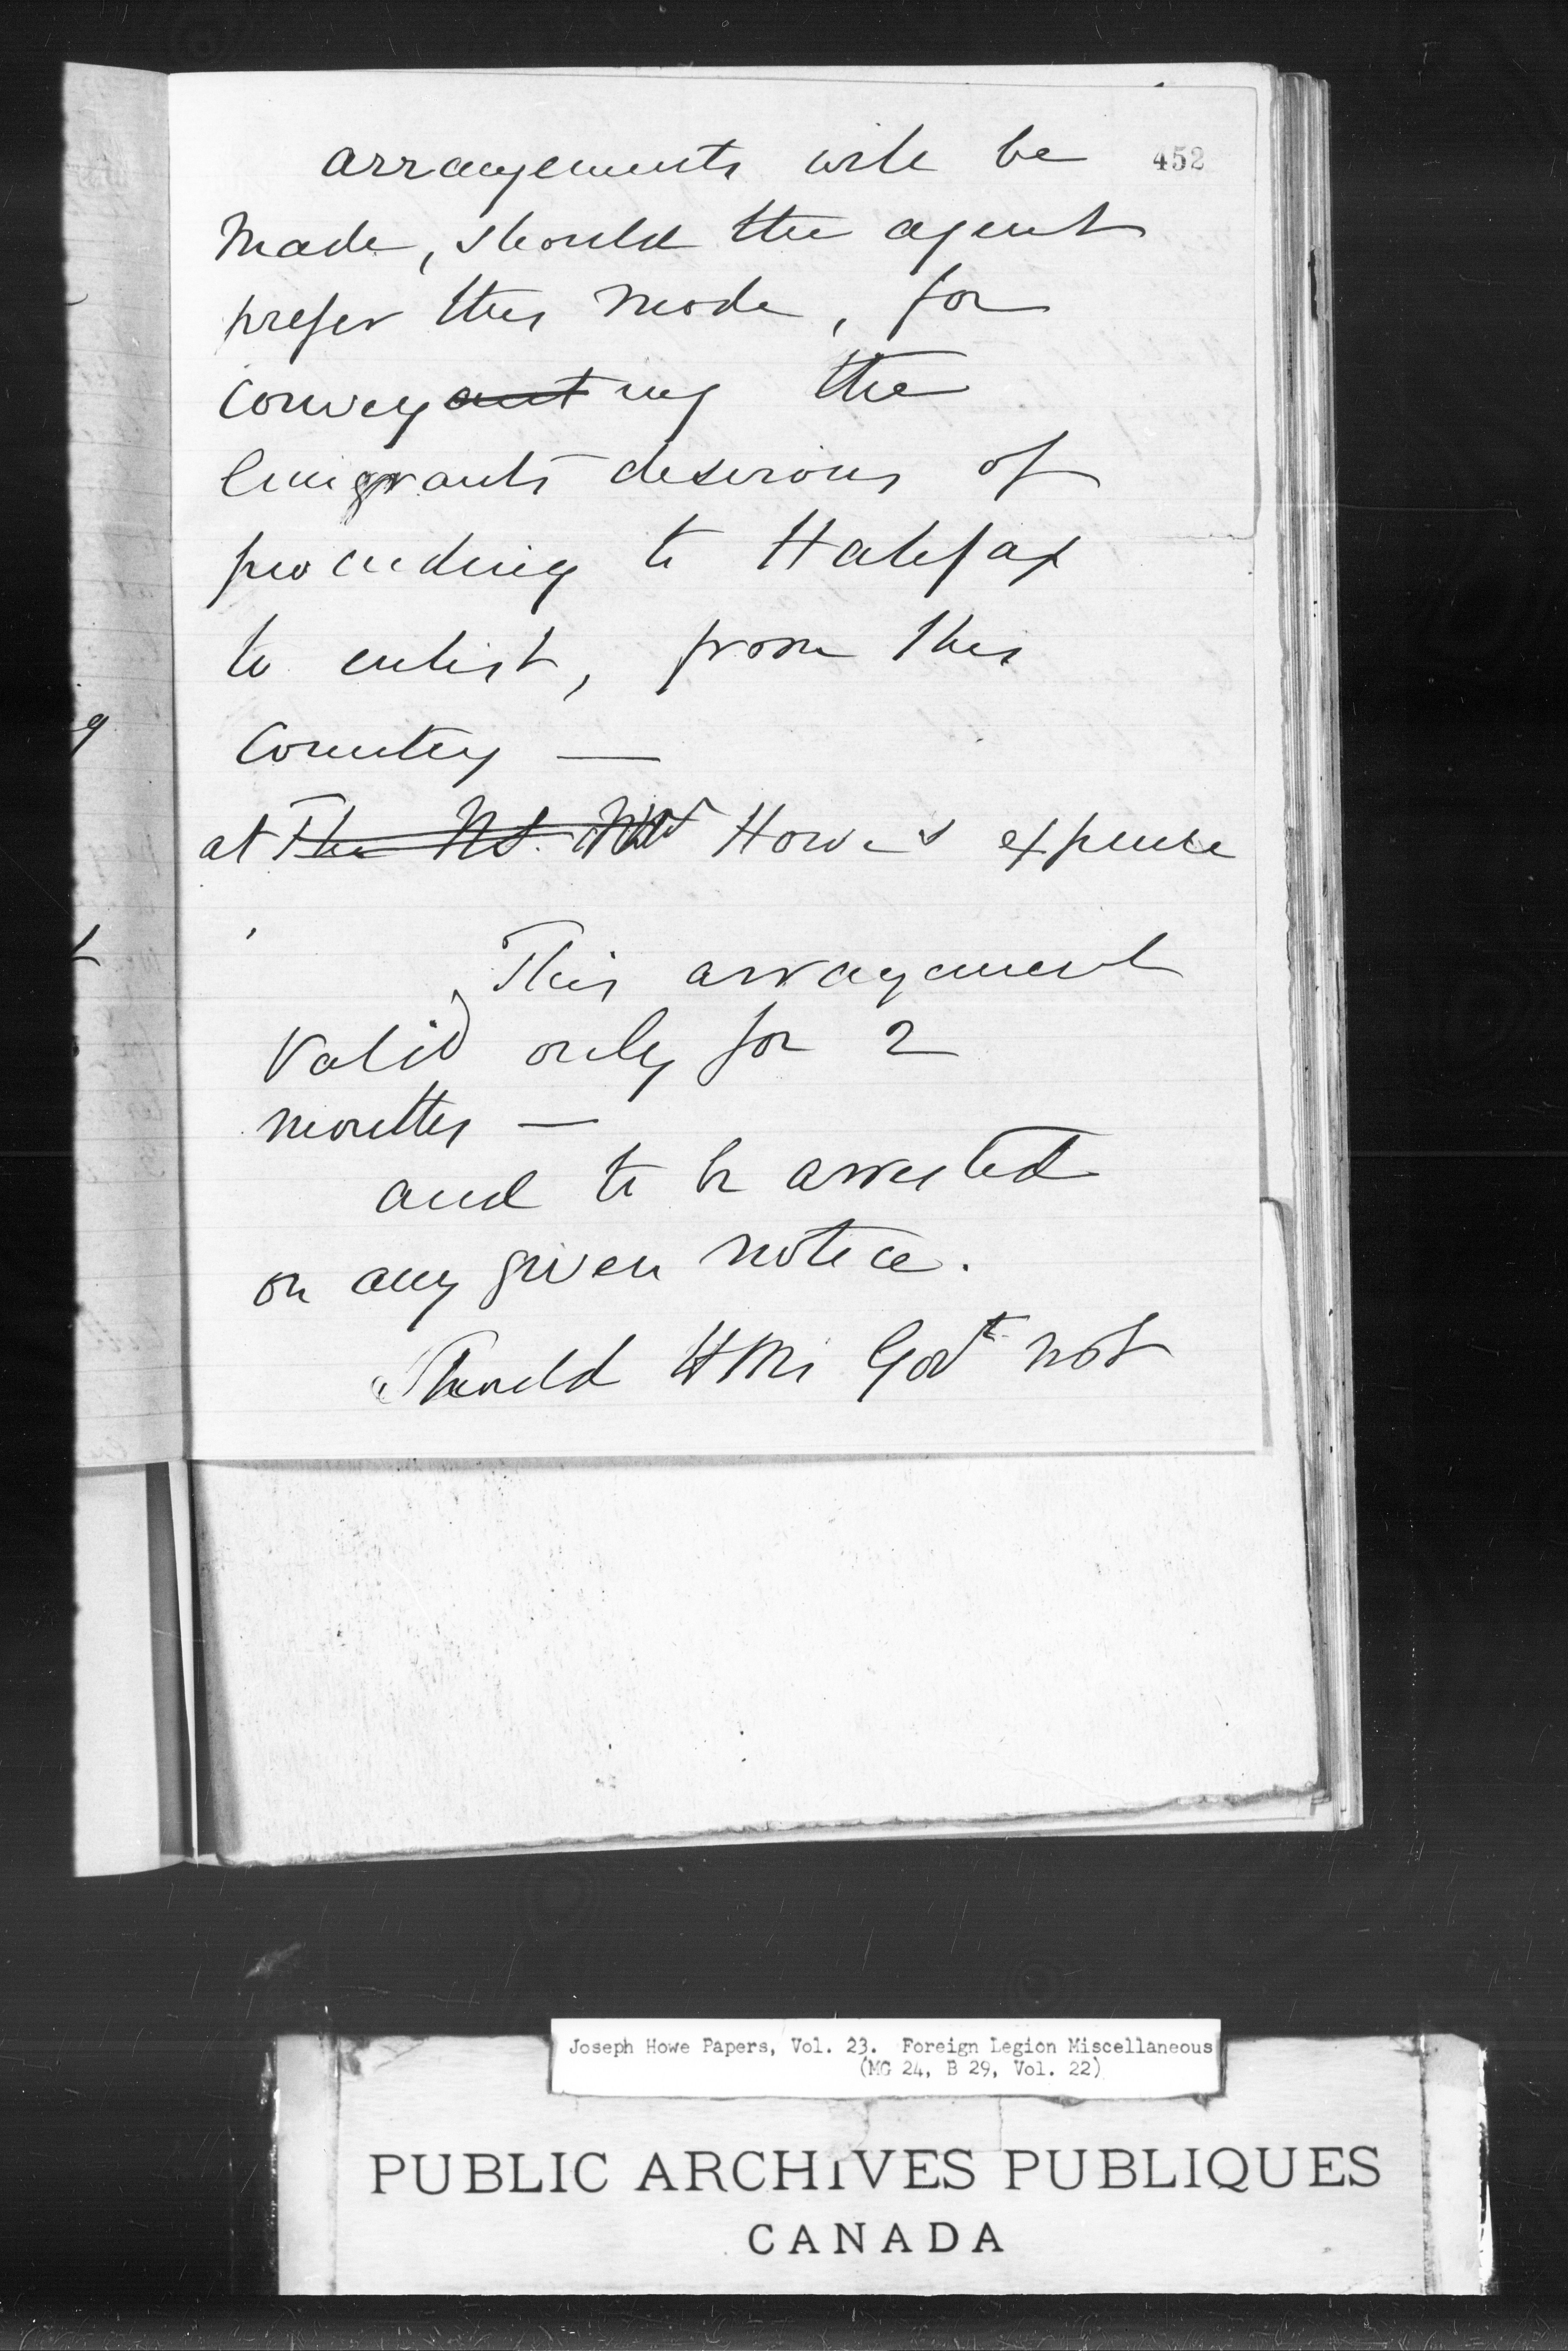 452
arrangements will be
made, should the agent
prefer this mode, for
conveyanting the
Emigrants desirous of
proceeding to Halifax
to enlist, from this
Country —
at The Howe's expense
This arrangement
valid only for 2
months —
and to be arrested
on any given notice.
Should HMs Govt not
Joseph Howe Papers, Vol. 23. Foreign Legion Miscellaneous
(MG 24, B 29, Vol. 22)
PUBLIC ARCHIVES PUBLIQUES
CANADA